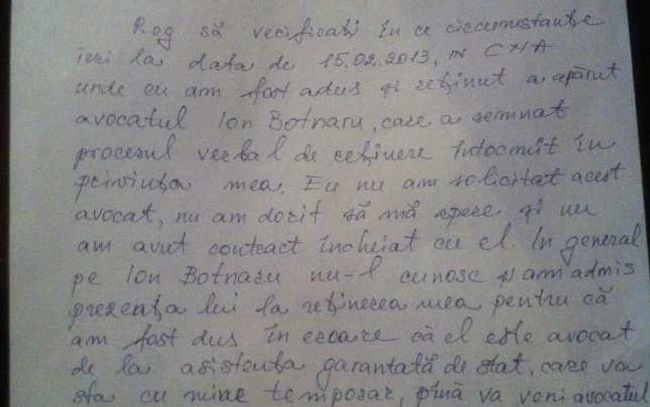 Rog să verificați în ce circumstanțe
ieri la data de 15.02.2013, în CNA
unde eu am fost adus și reținut a apărut
avocatul Ion Botnaru, care a semnat
procesul verbal de reținere întocmit în
privința mea. Eu nu am solicitat acest
avocat, nu am dorit să mă apere și nu
am avut contract încheiat cu el. In general
pe Ion Botnaru nu-l cunosc și am admis
prezența lui la reținerea mea pentru că
am fost dus în eroare că el este avocat
de la asistența garantată de stat, care va
sta cu mine temporar, pînă va veni avocatul